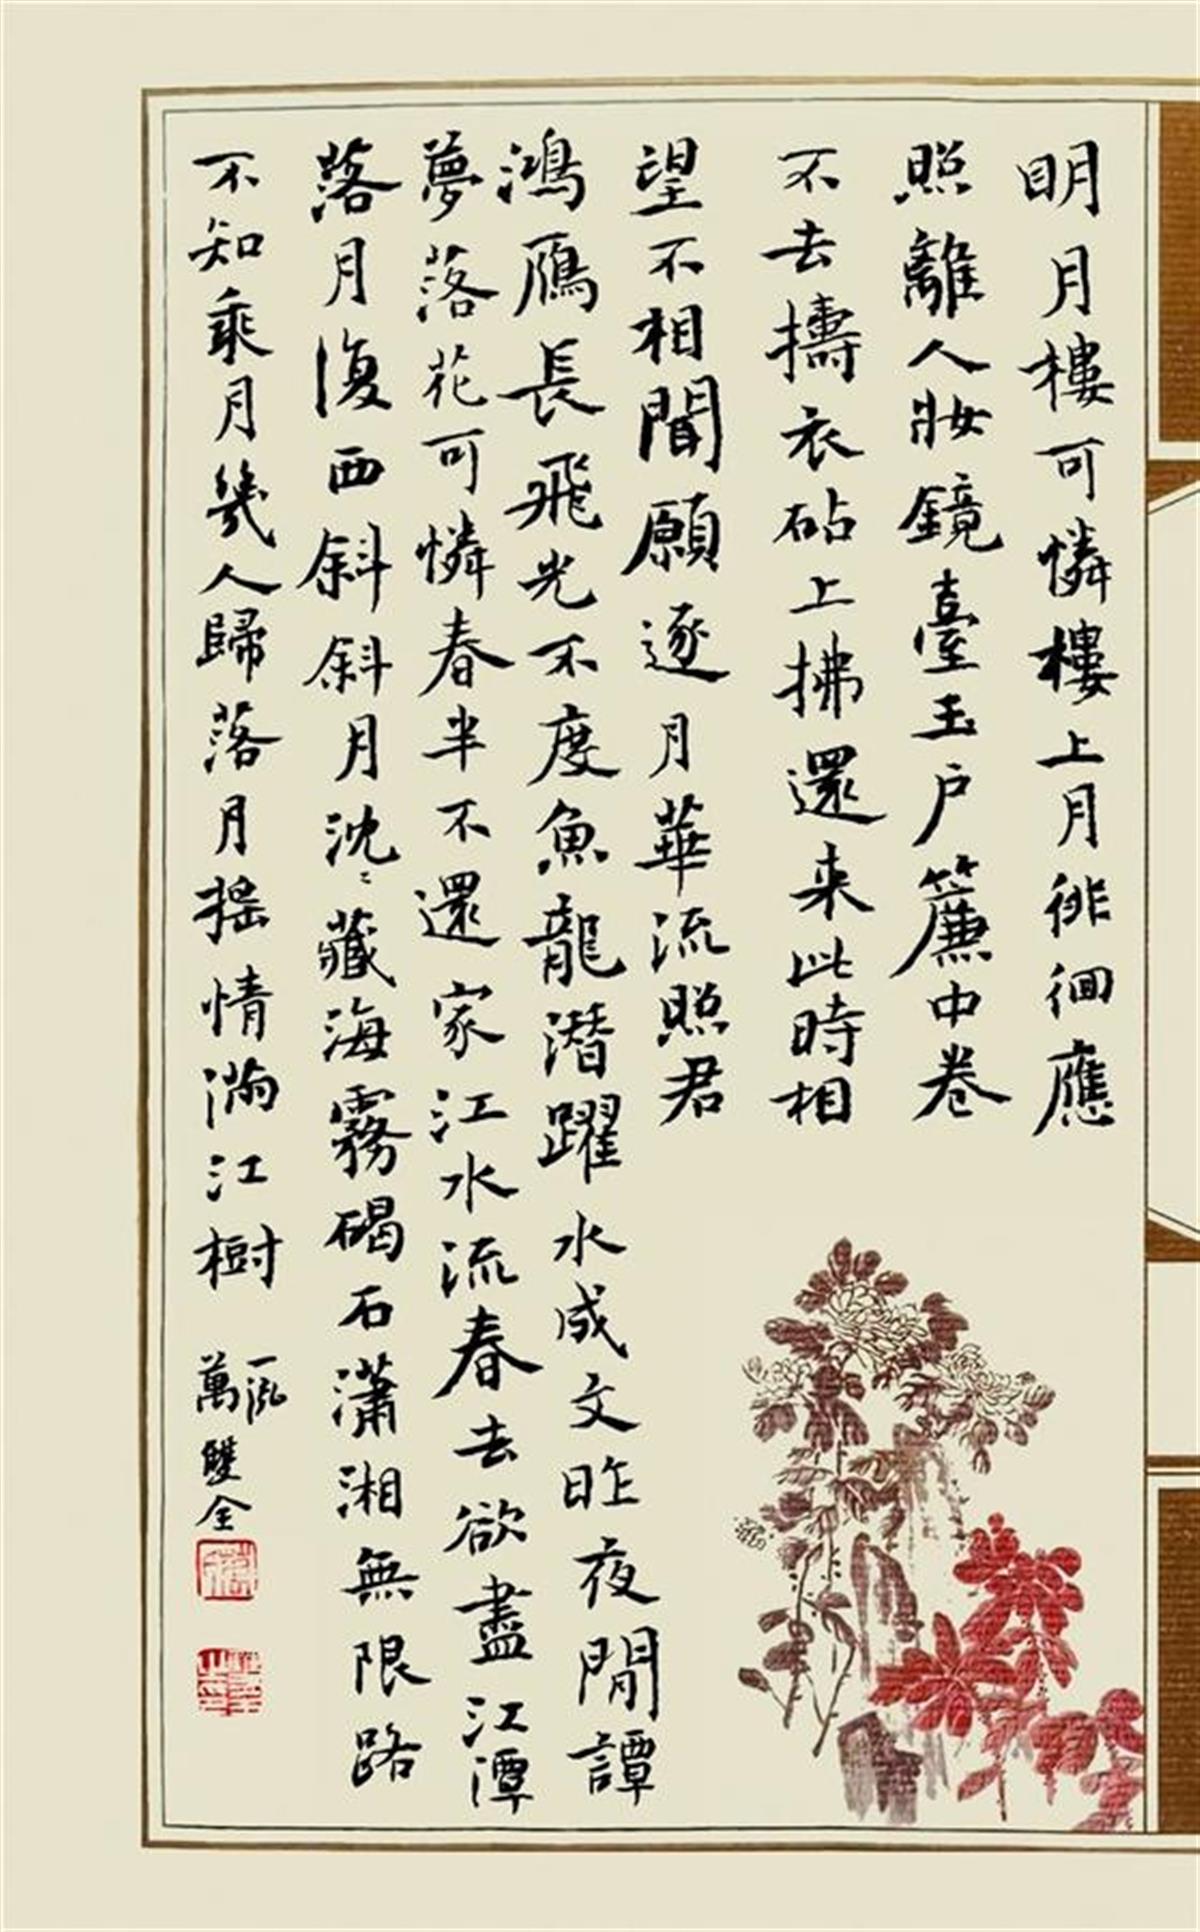 明月樓可憐樓上月徘徊應
照離人妝鏡臺玉户簾中卷
不去擣衣砧上拂還来此時相
望不相聞願逐月華流照君
鴻鴈長飛光不度魚龍潛躍水成文昨夜閒譚
夢落花可憐春半不還家江水流春去欲盡江潭
落月復西斜斜月沈〻藏海霧碣石瀟湘無限路
不知乘月幾人歸落月摇情滿江樹
一泓
萬雙全